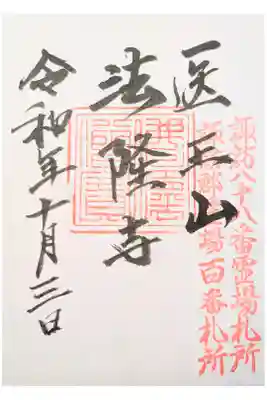 諏訪八十八番霊場札所
郡霊場百番札所
医王山
法隆寺
令和年十月三日